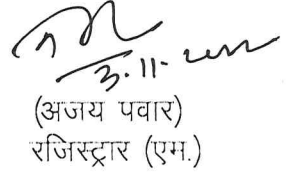 3.11.
(अजय पवार)
रजिस्ट्रार (एम.)